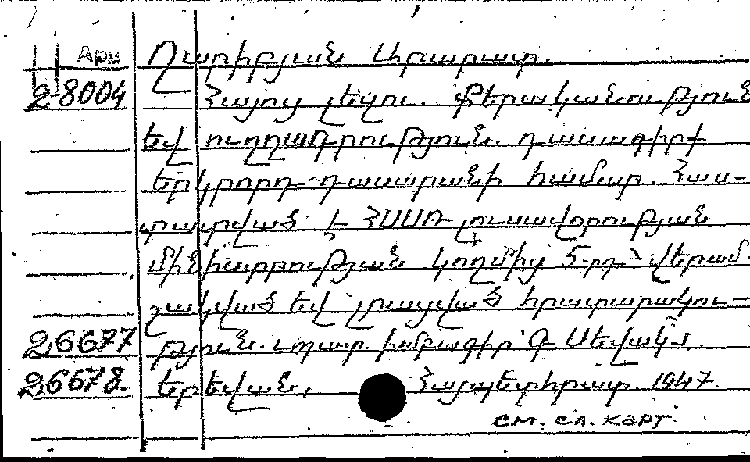 Арм Ղարիբյան Արարատ.
2-8004 Հայոց լեզու. Քերականություն
եվ ուղղագրություն. դասագիրք
երկրորդ դասարանի համար. Հաս-
տատված է ՀՍՍՌ լուսավորության
մինիստրության կողմից 5-րդ վերամ-
շակված եվ լրացված հրատարակու-
26677 թյուն. պատ. խմբագիր Գ. Սեվակ
26678. Երեվան, Հայպետհրատ 1947.
см. сл. карт.